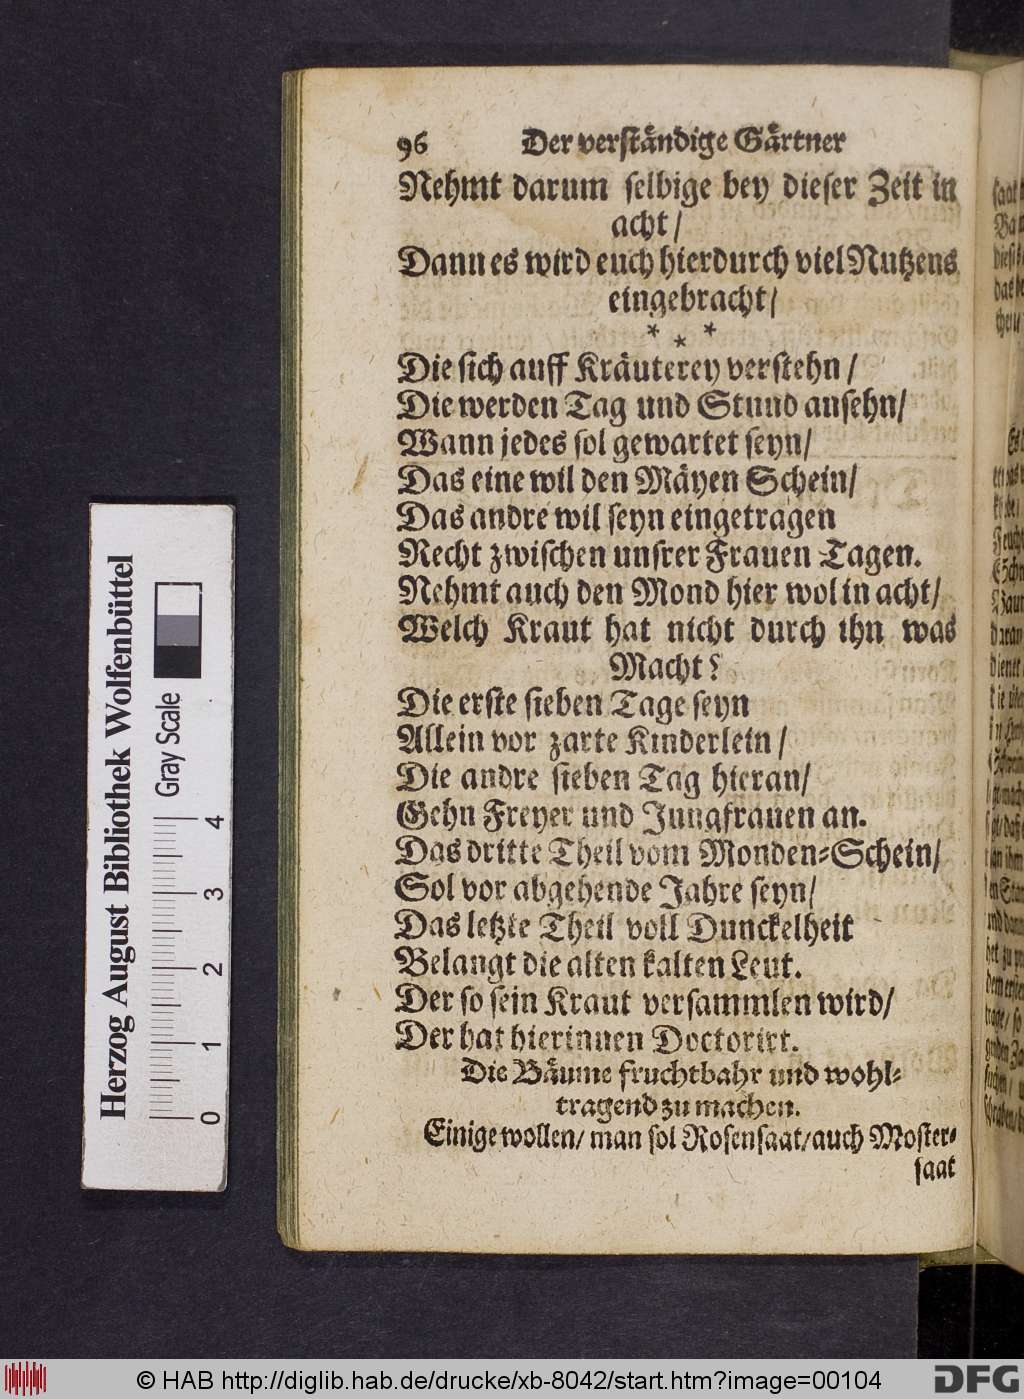 96 Der verständige Gärtner
Nehmt darum selbige bey dieser Zeit in
acht/
Dann es wird euch hierdurch viel Nutzens
eingebracht/
* * *
Die sich auff Kräuterey verstehn/
Die werden Tag und Stund ansehn/
Wann jedes sol gewartet seyn/
Das eine wil den Mäyen Schein/
Das andre wil seyn eingetragen
Recht zwischen unsrer Frauen Tagen.
Nehmt auch den Mond hier wol in acht/
Welch Kraut hat nicht durch ihn was
Macht?
Die erste sieben Tage seyn
Allein vor zarte Kinderlein/
Die andre sieben Tag hieran/
Gehn Freyer und Jungfrauen an.
Das dritte Theil vom Monden-Schein/
Sol vor abgehende Jahre seyn/
Das letzte Theil voll Dunckelheit
Belangt die alten kalten Leut.
Der so sein Kraut versammlen wird/
Der hat hierinnen Doctorirt.
Die Bäume fruchtbahr und wohl-
tragend zu machen.
Einige wollen/ man sol Rosensaat/auch Moster-
saat
Herzog August Bibliothek Wolfenbüttel
Gray Scale
0 1 2 3 4
© HAB http://diglib.hab.de/drucke/xb-8042/start.htm?image=00104
DFG